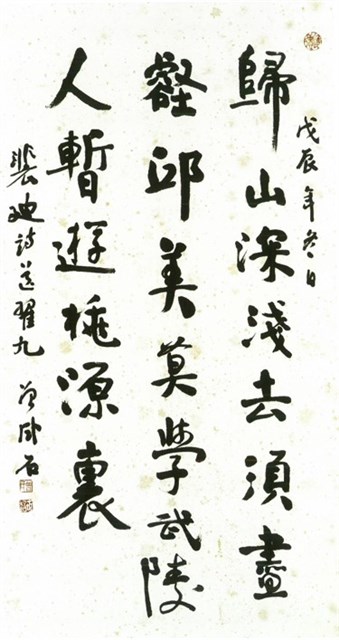 戊辰年冬日
歸山深淺去須盡
壑邱美莫學武陵
人暫遊桃源裏
裴迪詩送翟九